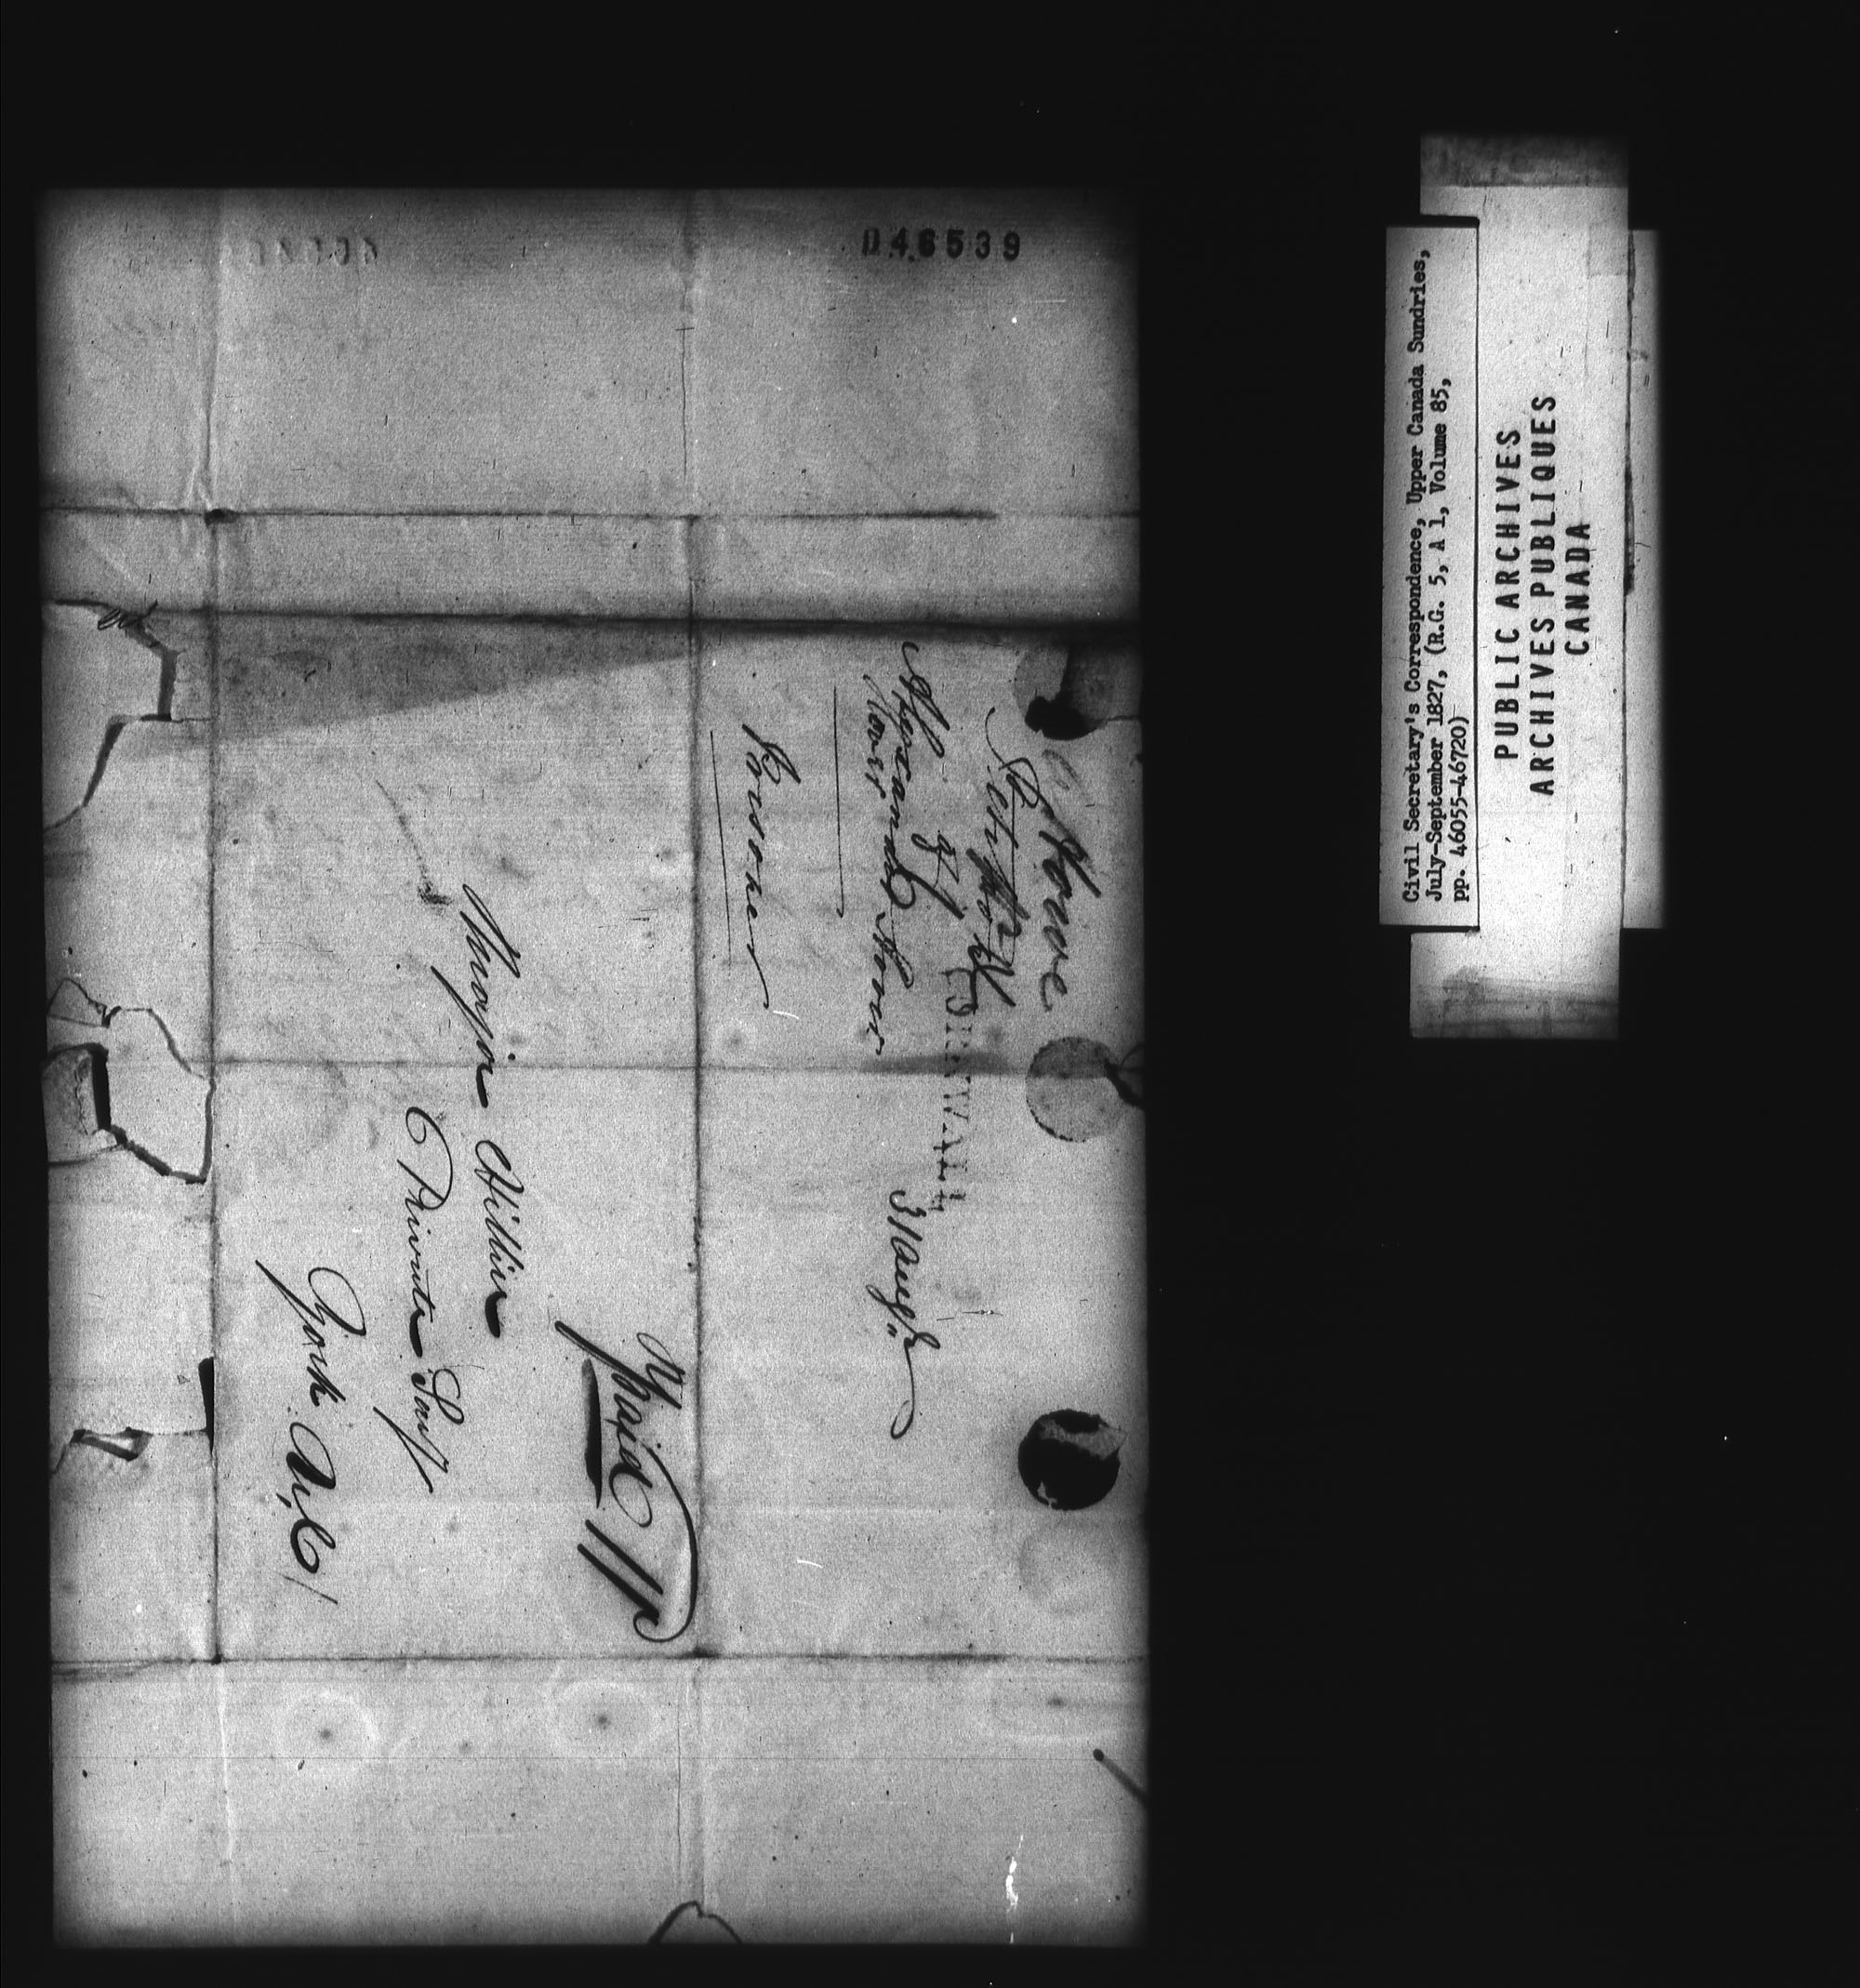 046539
Petition of
Prisoner
CORNWALL
31 Augt
Paid 11
Major Hillier
Private Secy
York U.C.
Civil Secretary's Correspondence, Upper Canada Sundries,
July-September 1827, (R.G. 5, A 1, Volume 85,
pp. 46055-46720)
PUBLIC ARCHIVES
ARCHIVES PUBLIQUES
CANADA